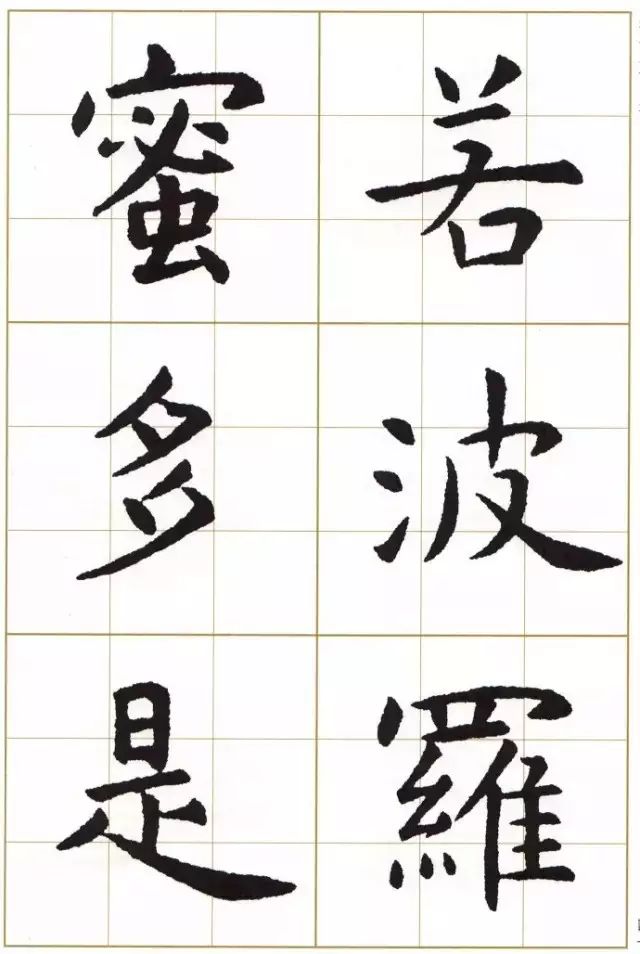 若波羅
蜜多是